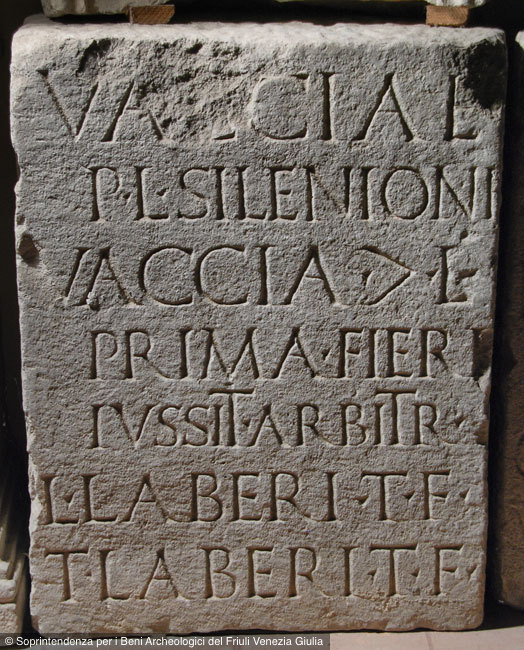 P·L·SILENIONI
VACCIA Ɔ·L·
PRIMA·FIERI
IVSSIT·ARBITR·
L·LABERI·T·F·
T·LABERI·T·F·
© Soprintendenza per i Beni Archeologici del Friuli Venezia Giulia